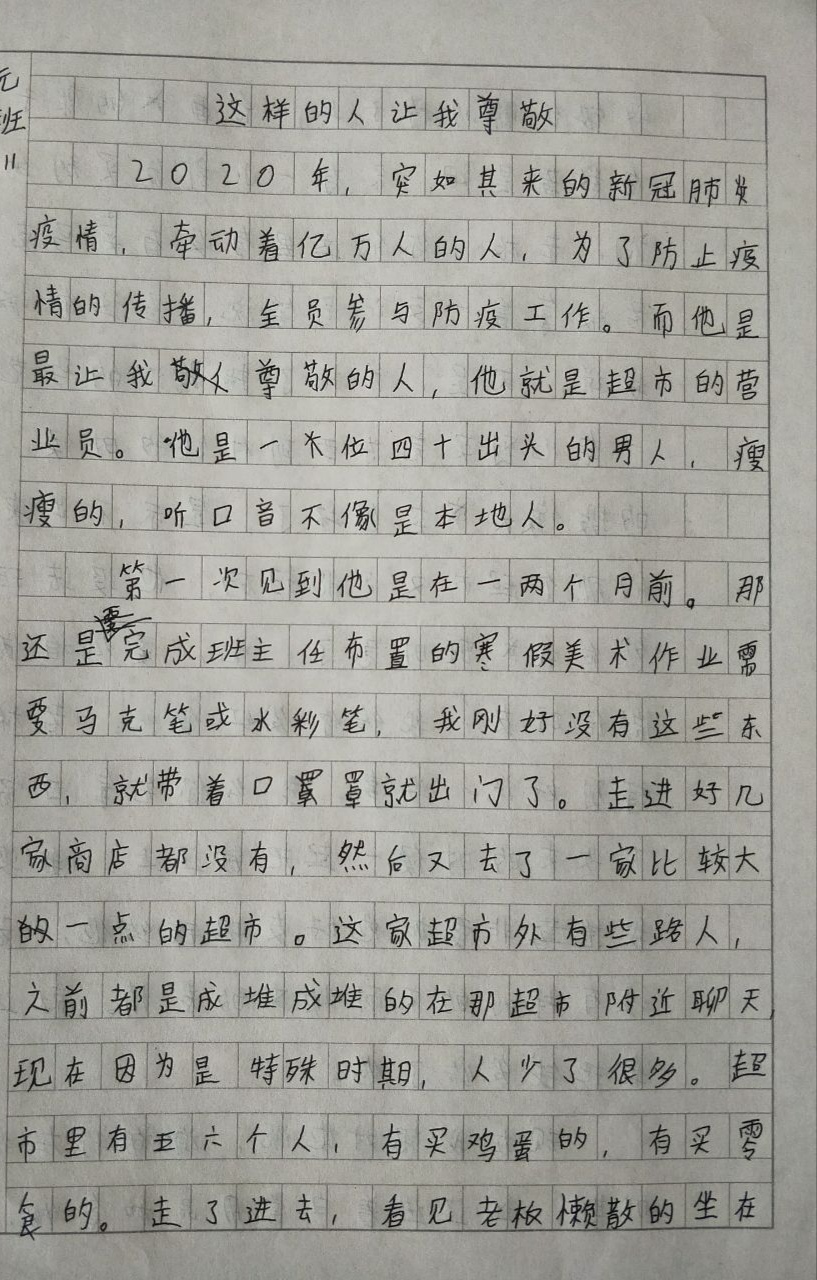 元
班
11
这样的人让我尊敬
2020年，突如其来的新冠肺炎
疫情，牵动着亿万人的人，为了防止疫
情的传播，全员参与防疫工作。而他是
最让我尊敬的人，他就是超市的营
业员。他是一位四十出头的男人，瘦
瘦的，听口音不像是本地人。
第一次见到他是在一两个月前。那
还是完成班主任布置的寒假美术作业需
要马克笔或水彩笔，我刚好没有这些东
西，就带着口罩罩就出门了。走进好几
家商店都没有，然后又去了一家比较大
的一点的超市。这家超市外有些路人，
之前都是成堆成堆的在那超市附近聊天，
现在因为是特殊时期，人少了很多。超
市里有五六个人，有买鸡蛋的，有买零
食的。走了进去，看见老板懒散的坐在